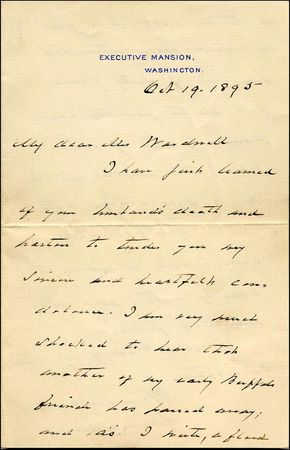 EXECUTIVE MANSION,
WASHINGTON.
Oct 19. 1895
My dear Mrs Wardwell
I have just learned
of your husband's death and
hasten to tender you my
sincere and heartfelt con-
dolence. I am very much
shocked to hear that
another of my early Buffalo
friends has passed away;
and as I write, a flood